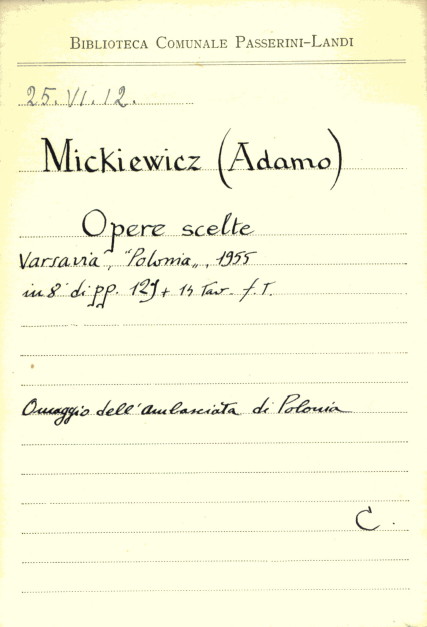 BIBLIOTECA COMUNALE PASSERINI-LANDI
25.VI.12.
Mickiewicz (Adamo)
Opere scelte
Varsavia, "Polonia", 1955
in 8° di pp. 129 + 14 Tav. f. T.
Omaggio dell'ambasciata di Polonia
C.